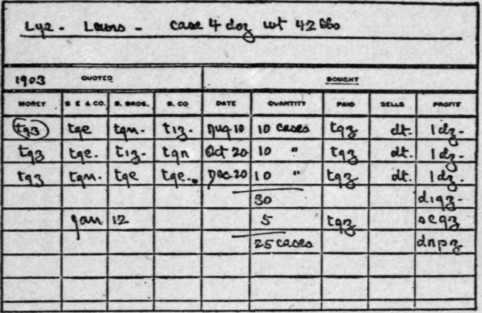 Lye - Lewis - case 4 doz wt 42 lbs
1903 QUOTED BOUGHT
MONEY S E & CO. R. BROS. B. CO DATE QUANTITY PAID SELLS PROFIT
tqz tqe tqn. tiz. Aug 10 10 cases tqz dt. 1dz.
tqz tqe. tiz. tqn Oct 20 10 " tqz dt. 1dz.
tqz tqn. tqe tqe. Dec 20 10 " tqz dt. 1dz.
30 diqz.
Jan 12 5 tqz seqz
25 cases dnpz